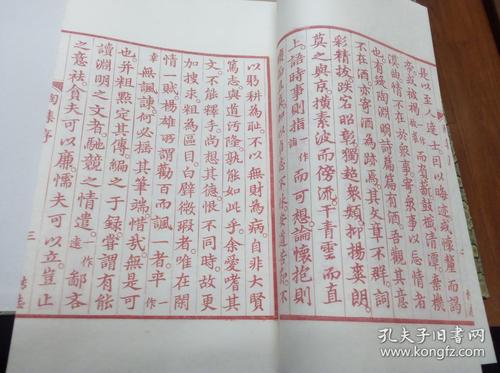 因以晦迹或懷釐而謁
薪鼓檝清潭棄機
漢曲情不在於衆事寄衆事以忘情者
也有疑陶淵明詩篇篇有酒吾觀其意
不在酒亦寄酒為跡焉其文章不羣詞
彩精拔跌宕昭彰獨超衆類抑揚爽朗
莫之與京橫素波而傍流干青雲而直
上語時事則指而可想論懷抱則
志不休安道苦節不
以躬耕為恥不以無財為病自非大賢
篤志與道汚隆孰能如此乎余愛嗜其
文不能釋手尚想其德恨不同時故更
加搜求粗為區目白璧微瑕者惟在閑
情一賦楊雄所謂勸百而諷一者卒一作
幸無諷諫何必搖其筆端惜哉無是可
也并粗點定其傳編之于録嘗謂有能
讀淵明之文者馳競之情遣一作遠鄙吝
之意祛貪夫可以廉懦夫可以立豈止
陶集序
三
孔夫子旧书网
www.kongfz.com